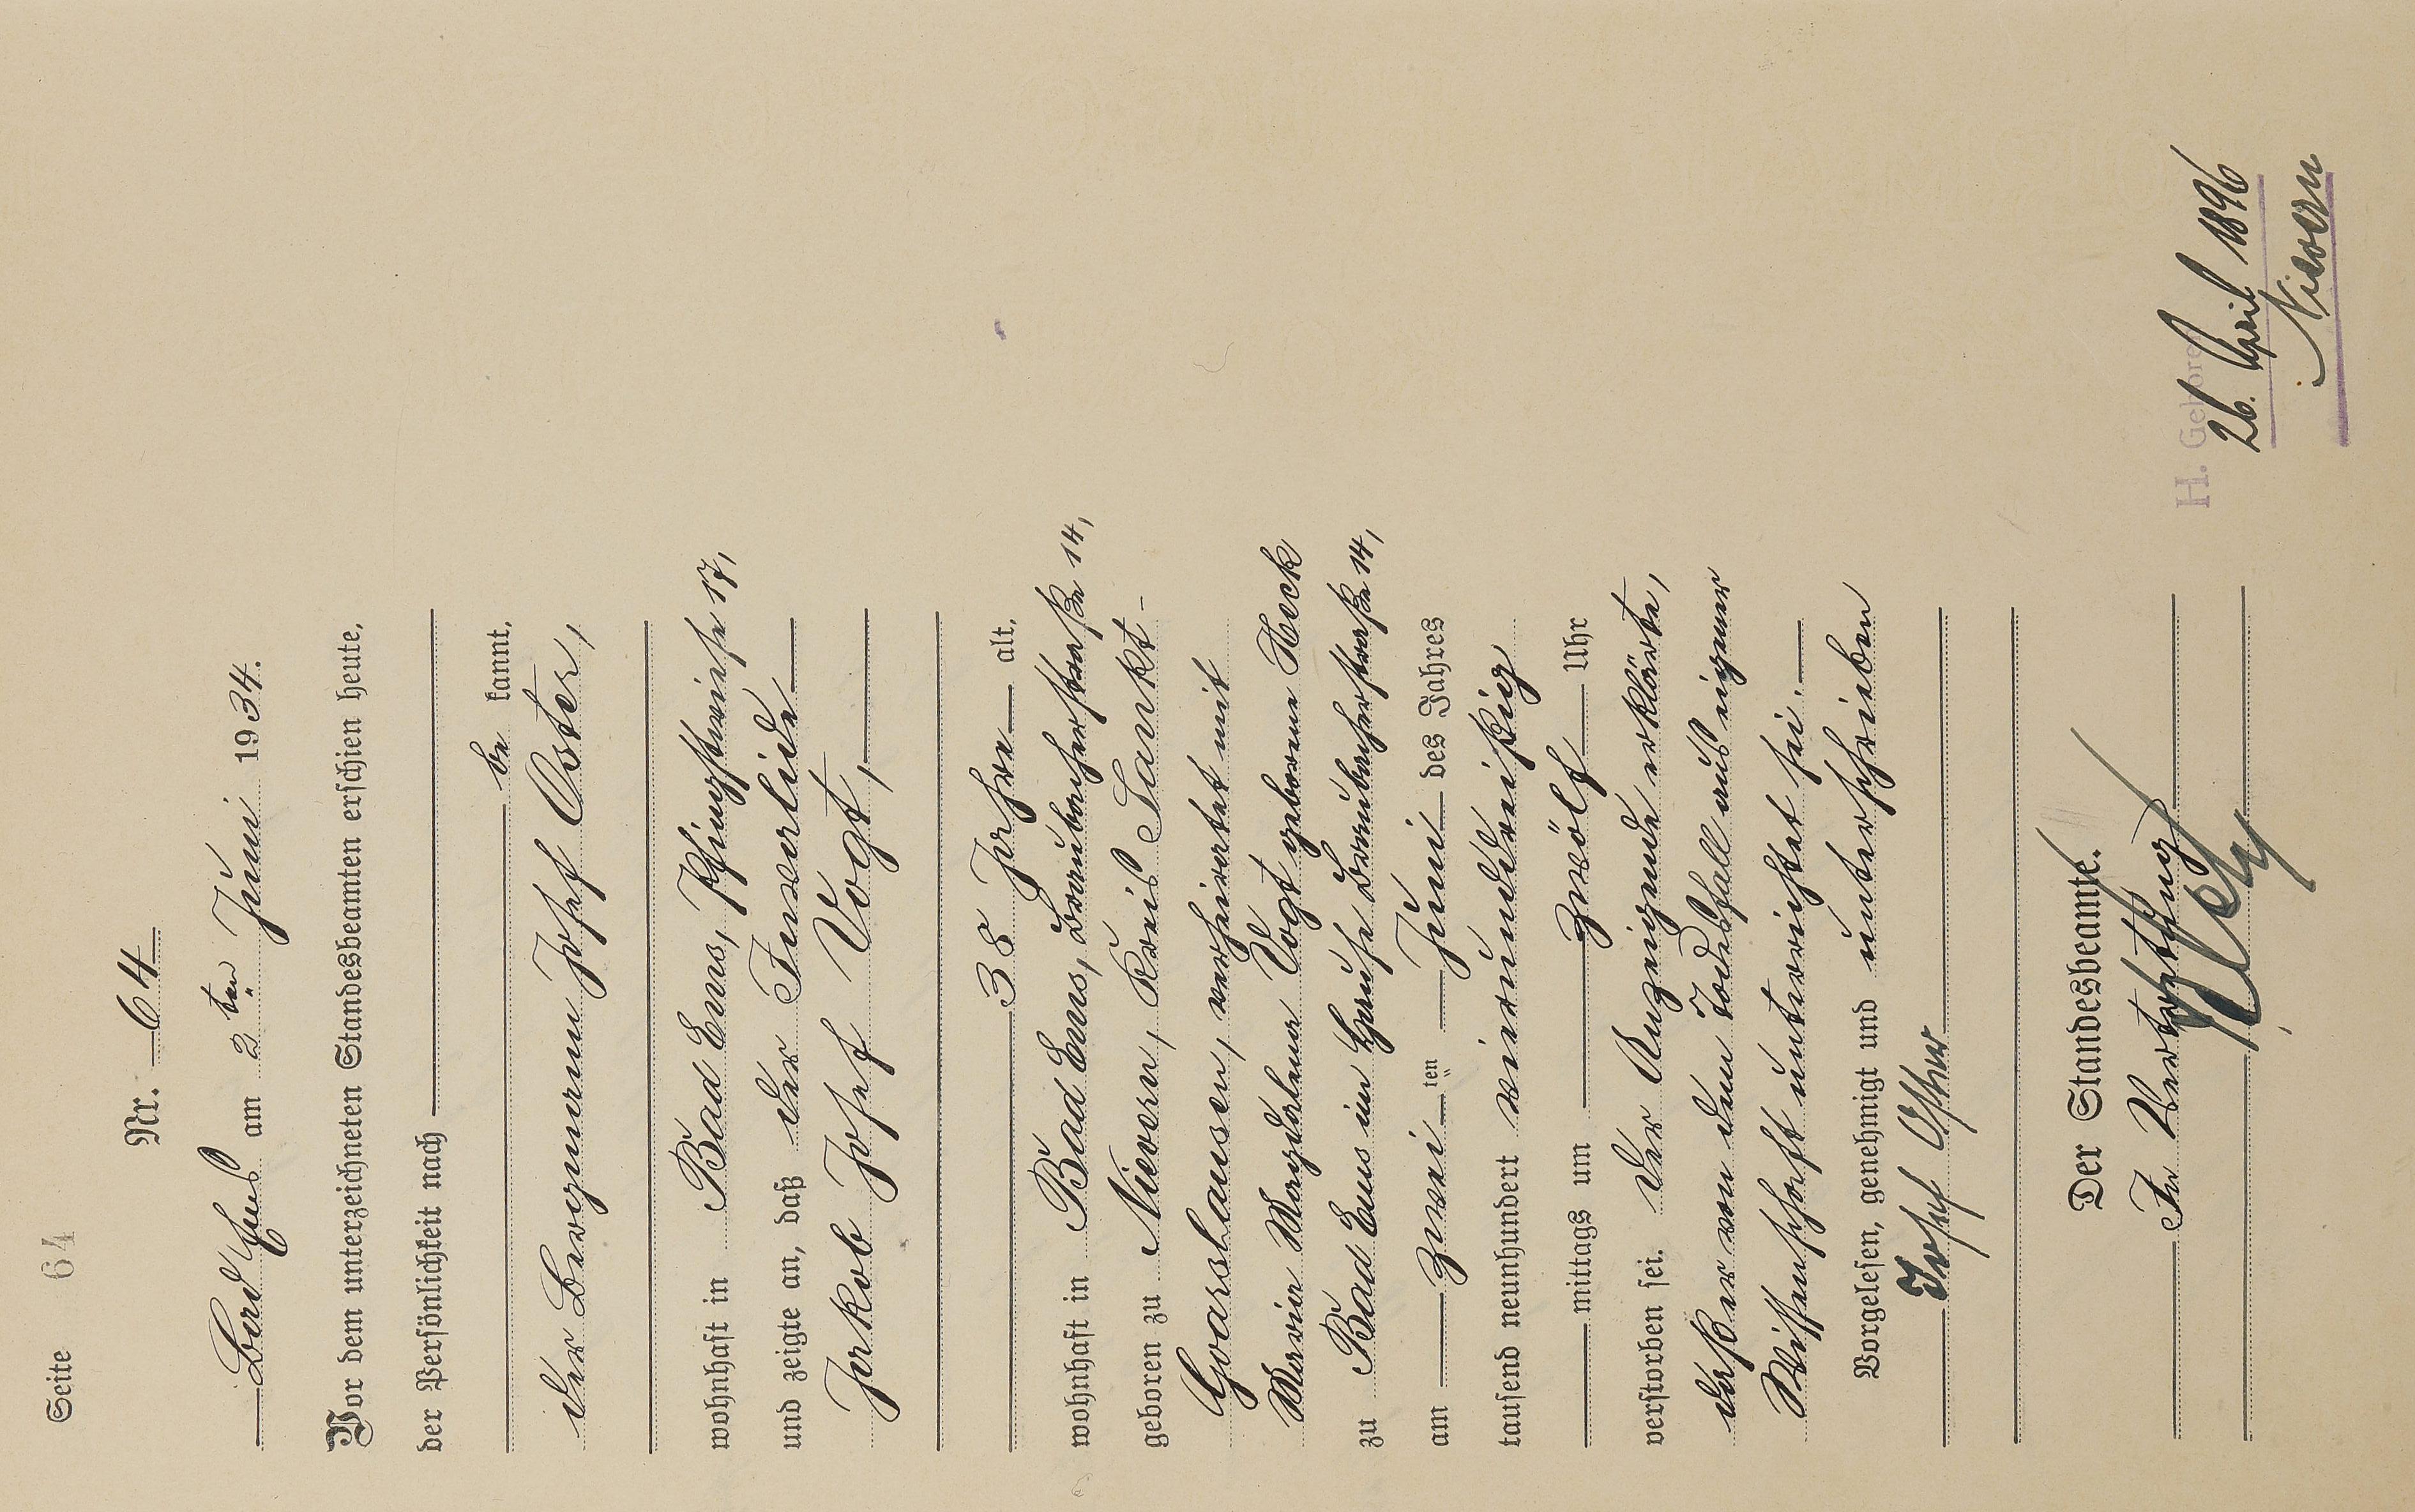 Seite 64
Nr. 64
Bad Ems am 2ten Juni 1934.
Vor dem unterzeichneten Standesbeamten erschien heute,
der Persönlichkeit nach
be kannt,
der Bergmann Josef Oster,
wohnhaft in Bad Ems, Pfingstwiese 17,
und zeigte an, daß der Invalide
Jakob Josef Vogt,
38 Jahre alt,
wohnhaft in Bad Ems, Braubacherstraße 14,
geboren zu Nievern, Kreis Sankt-
Goarshausen, verheiratet mit
Maria Magdalena Vogt geborene Heck
zu Bad Ems im Hause Braubacherstraße 14,
am zwei ten Juni des Jahres
tausend neunhundert vierunddreißig
mittags um zwölf Uhr
verstorben sei. Der Anzeigende erklärte,
daß er von dem Todesfall aus eigener
Wissenschaft unterrichtet sei.
Vorgelesen, genehmigt und unterschrieben
Josef Oster
Der Standesbeamte.
In Vertretung
H. Geboren
26. April 1896
Nievern